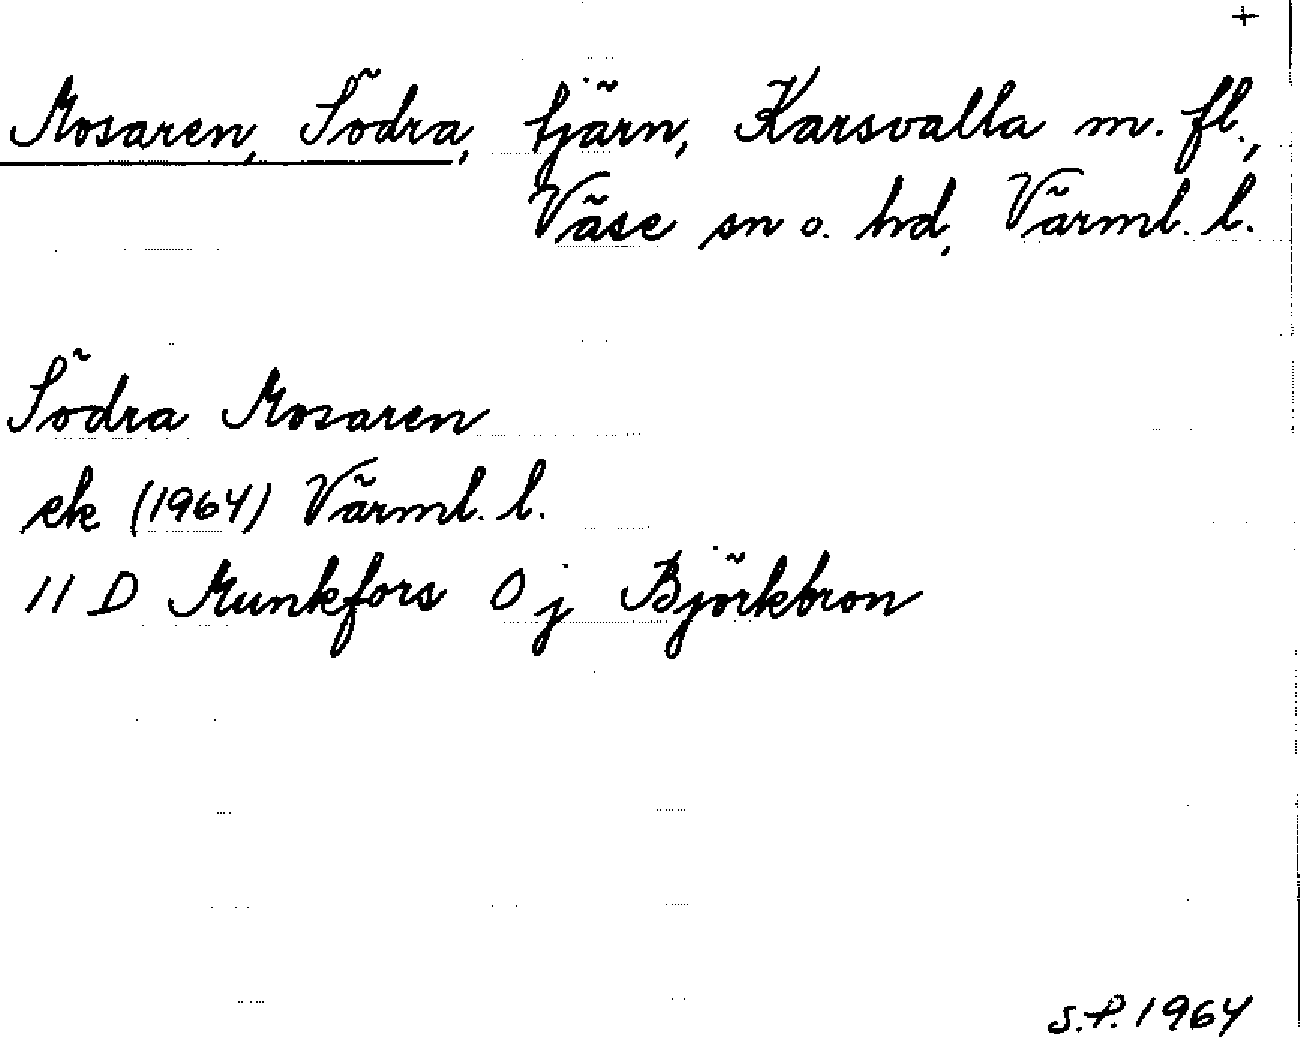 +
Mosaren, Södra, tjärn, Karsvalla m. fl.,
Väse sn o. hd, Värml. l.
Södra Mosaren
ek (1964) Värml. l.
11 D Munkfors 0 j Björkbron
S.P. 1964